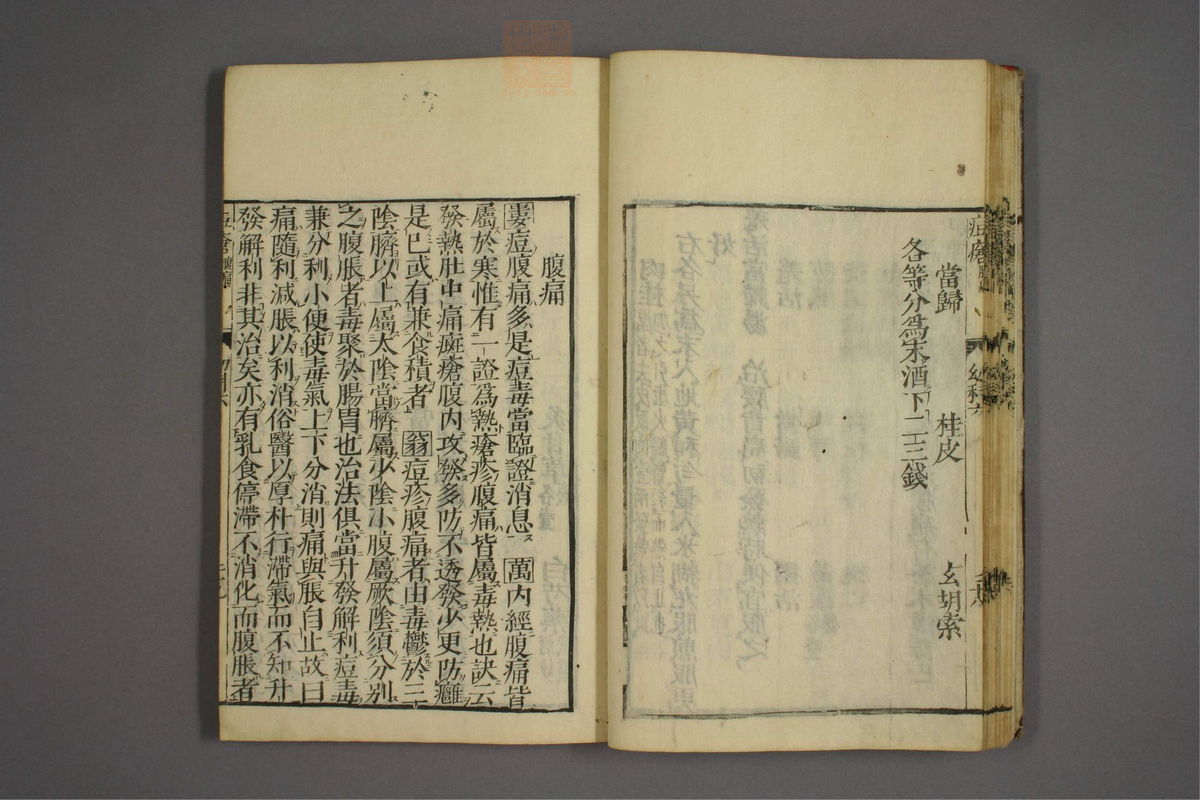 當歸　桂皮　玄胡索
各等分爲末酒下二三錢
腹痛
婁痘腹痛多是痘毒當臨證消息　萬內經腹痛皆
屬於寒惟有一證爲熱瘡疹腹痛皆屬毒熱也訣云
發熱肚中痛斑瘡腹內攻發多防不透發少更防癰
是已或有兼食積者　翁痘疹腹痛者由毒鬱於三
陰臍以上屬太陰當臍屬少陰小腹屬厥陰須分別
之腹脹者毒聚於腸胃也治法俱當升發解利痘毒
兼分利小便使毒氣上下分消則痛與脹自止故曰
痛隨利減脹以利消俗醫以厚朴行滯氣而不知升
發解利非其治矣亦有乳食停滯不消化而腹脹者